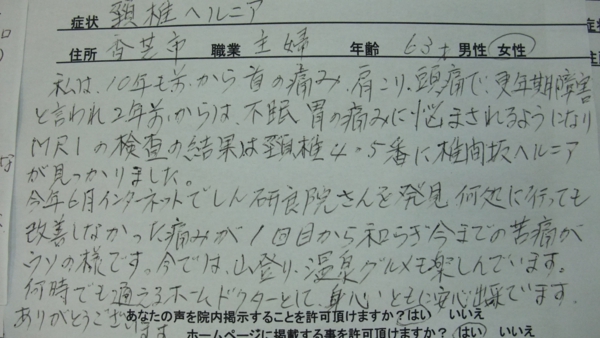 症状 頚椎ヘルニア
住所 香芝市 職業 主婦 年齢 63才 男性 女性
私は、10年も前から首の痛み、肩こり、頭痛で、更年期障害
と言われ2年前からは、不眠 胃の痛みに悩まされるようになり
MRIの検査の結果は頚椎4・5番に椎間板ヘルニア
が見つかりました。
今年6月インターネットでしん研良院さんを発見 何処に行っても
改善しなかった痛みが1回目から和らぎ今までの苦痛が
ウソの様です。今では、山登り、温泉グルメも楽しんでいます。
何時でも通えるホームドクターとして、身心ともに安心出来ています。
ありがとうございます
あなたの声を院内掲示することを許可頂けますか？ はい いいえ
ホームページに掲載する事を許可頂けますか？ はい いいえ